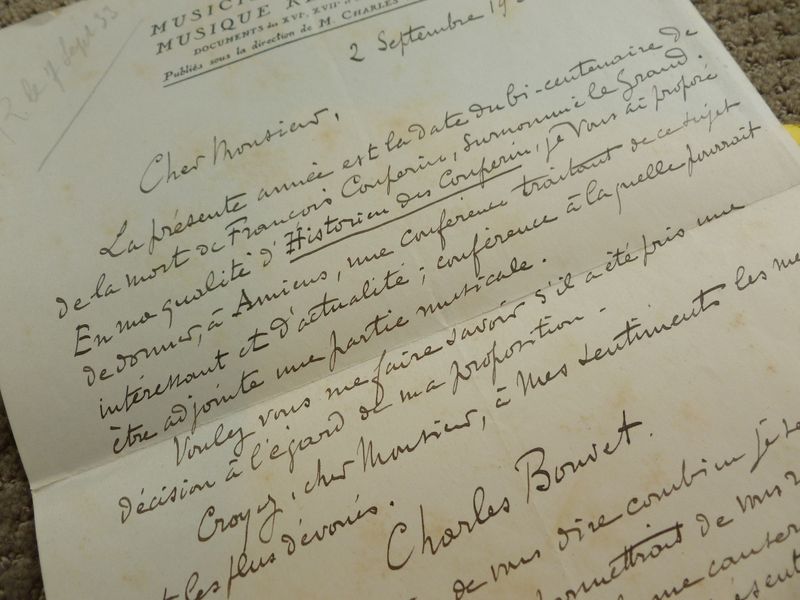 MUSICI
MUSIQUE R
DOCUMENTS du XVIe, XVIIe
Publiés sous la direction de M. CHARLES
R. le 7 Sept 33
2 Septembre 19
Cher Monsieur,
La présente année est la date du bi-centenaire de
de la mort de François Couperin, surnommé le Grand.
En ma qualité d'Historien des Couperin, je vous ai proposé
de donner, à Amiens, une conférence traitant de ce sujet
intéressant et d'actualité ; conférence à laquelle pourrait
être adjointe une partie musicale.
Voulez vous me faire savoir s'il a été pris une
décision à l'égard de ma proposition -
Croyez, cher Monsieur, à mes sentiments les me
les plus dévoués.
Charles Bouvet.
de vous dire combien je se
permettrait de vous
me causer